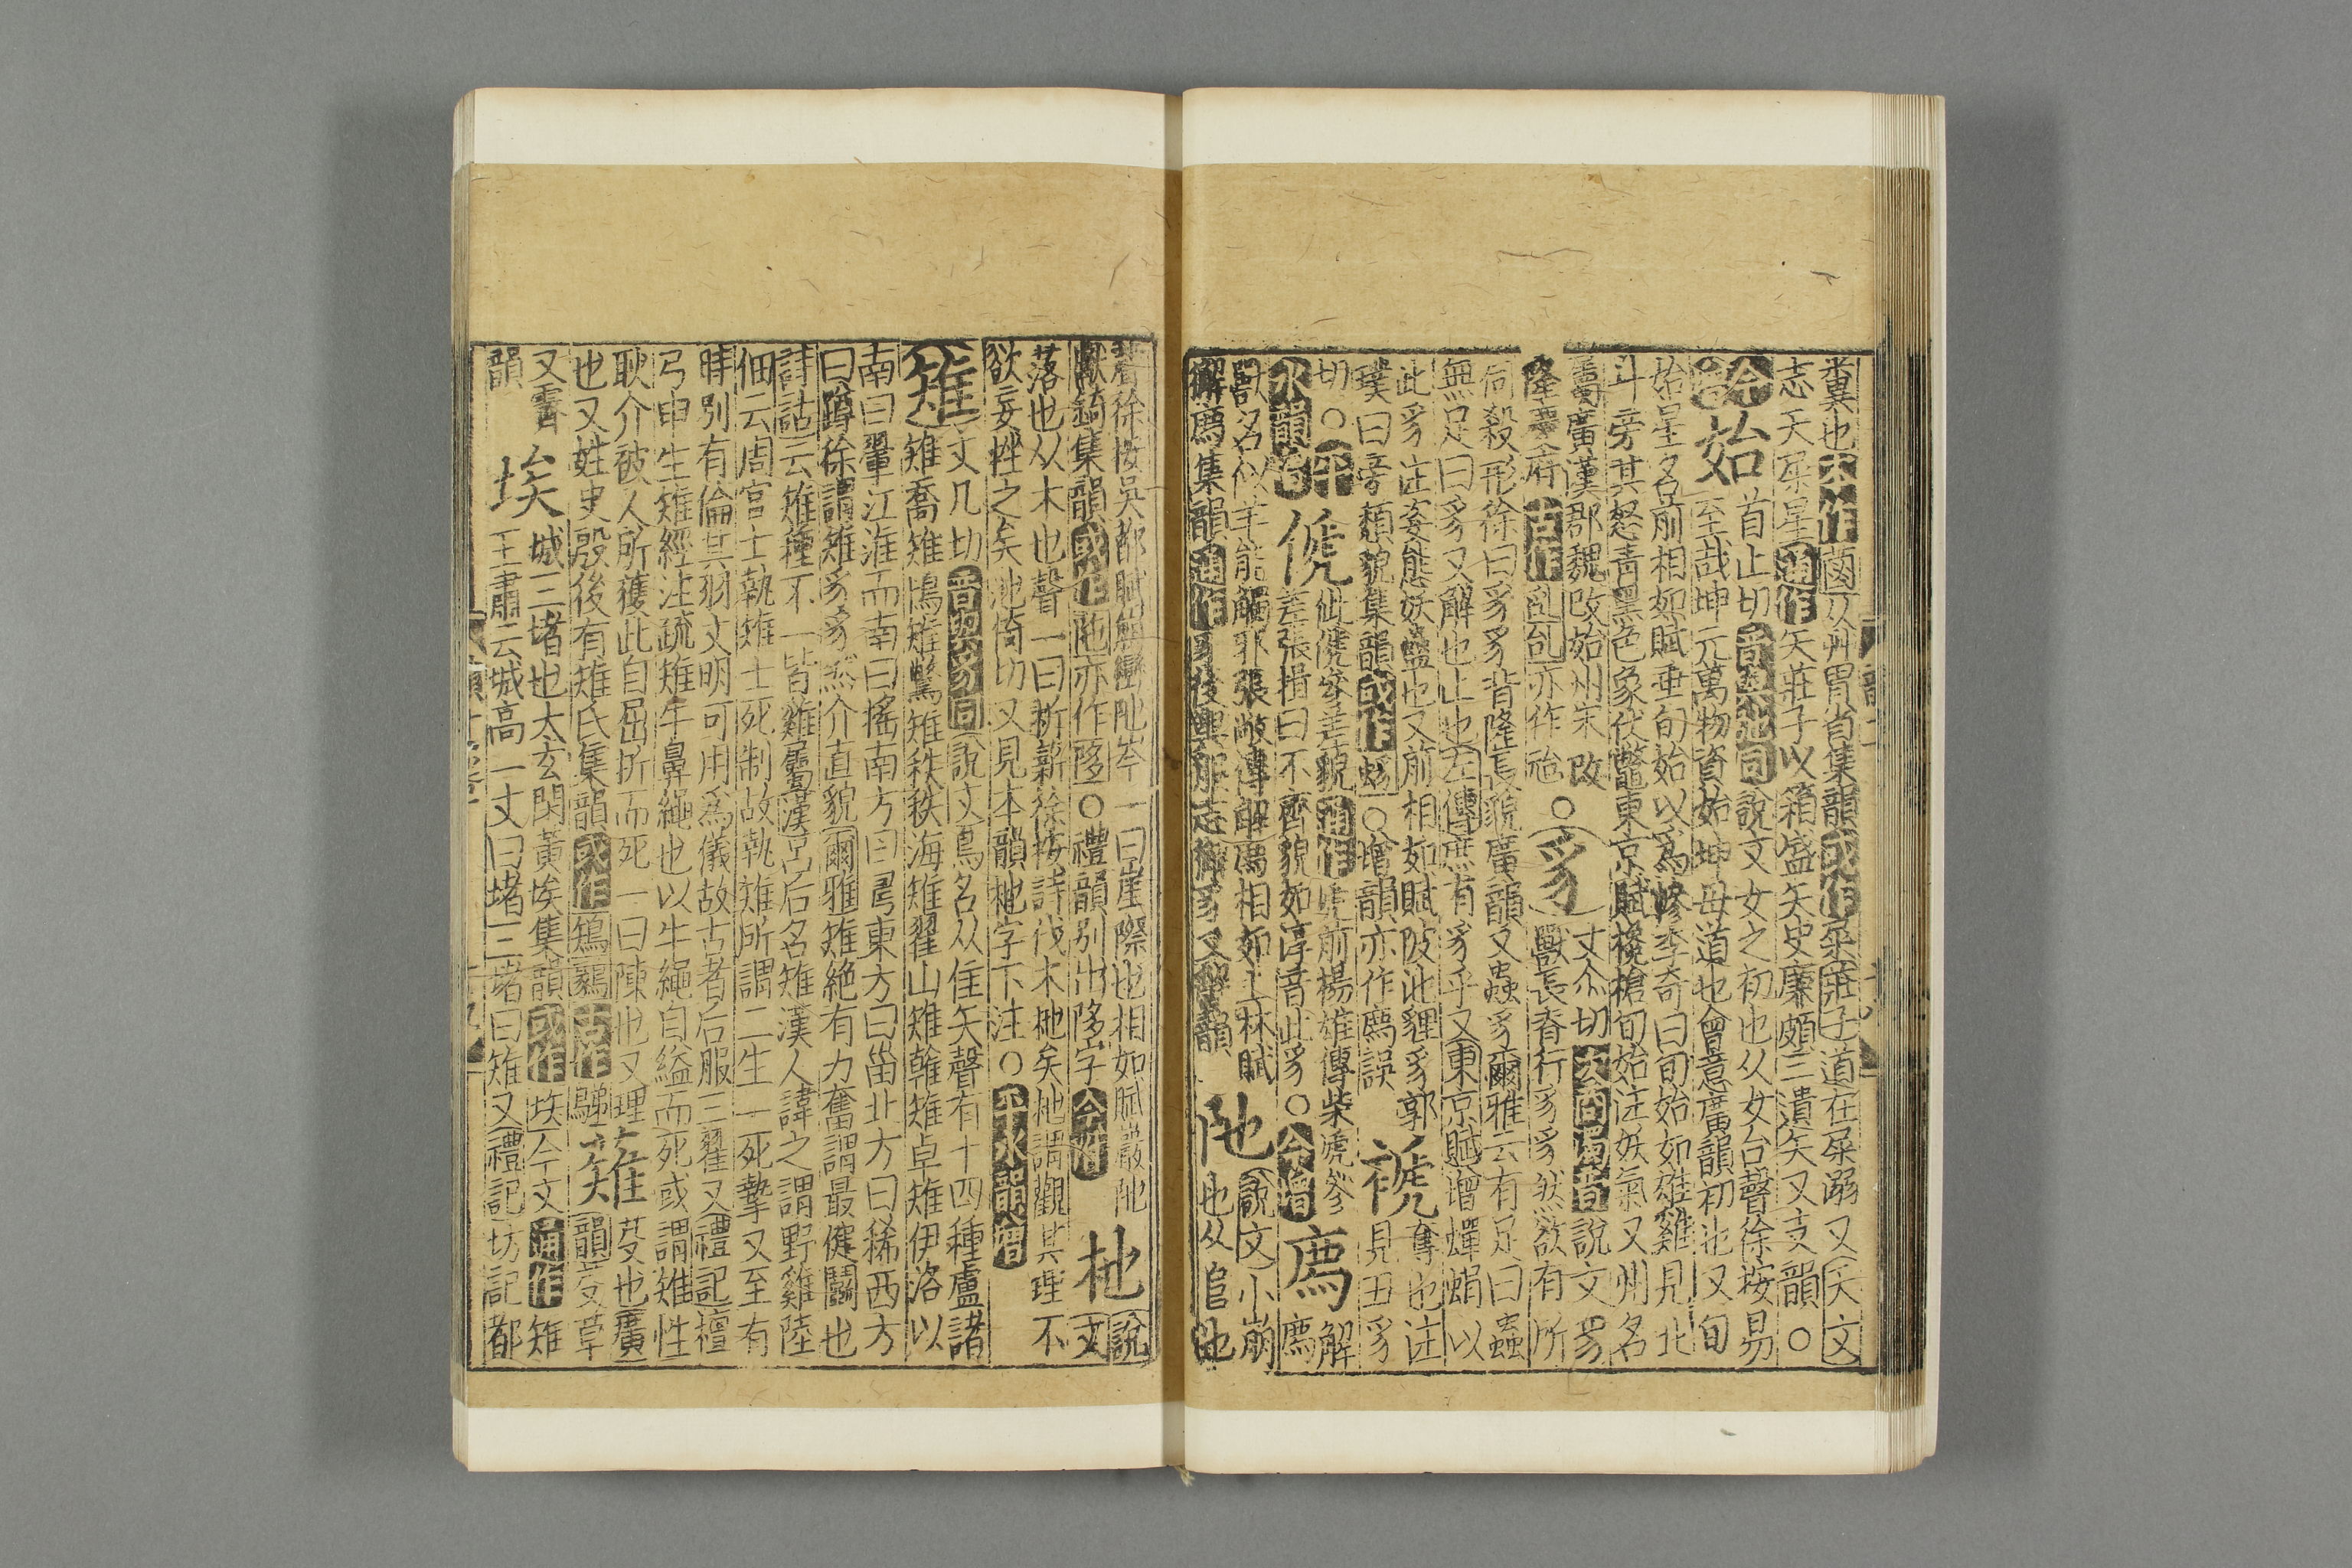 糞也亦作𦳊从艸胃省集韻或作屎莊子道在屎溺又天文
志天屎星通作矢莊子以筐盛矢史廉頗三遺矢又支韻○
始首止切音與弛同說文女之初也从女台聲徐按易
至哉坤元萬物資始坤母道也會意廣韻初也又旬
始星名前相如賦垂旬始以爲幓李奇曰旬始如雄雞見北
斗旁其怒靑黑色象伏鼈東京賦欃槍旬始注妖氣又州名
屬廣漢郡魏改始州宋改
隆慶府古作亦作○豸丈尒切獸長脊行豸豸然欲有所
伺殺形徐曰豸豸背隆長貌廣韻又蟲豸爾雅云有足曰蟲
無足曰豸又解也止也左傳庶有豸乎又東京賦增蟬蜎以
此豸注姿態妖蠱也又前相如賦陂池貏豸郭
璞曰旁頹貌集韻或作○增韻亦作廌誤褫奪也注見丑豸
切○傂傂容差貌通作虒前揚雄傳柴虒參
差張揖曰不齊貌如淳音此豸○今增廌解廌
獸名似羊能觸邪張敞傳解廌相如上林賦
獬廌集韻通作豸後輿服志獬豸又蟹韻阤說文小崩也从𨸏也
聲徐按吳都賦崩巒阤岑一曰崖際也相如賦巖阤
甗錡集韻或作阤亦作陊○禮韻別出陊字今附杝說文
落也从木也聲一曰析薪徐按詩伐木杝矣杝謂觀其理不
欲妄挫之矣池倚切又見本韻杝字下注○平水韻增
雉丈几切音與豸同說文鳥名从隹矢聲有十四種盧諸
雉喬雉鳪雉鷩雉秩秩海雉翟山雉雗雉卓雉伊洛以
南曰翬江淮而南曰搖南方曰𢏚東方曰甾北方曰稀西方
曰蹲徐謂雉豸豸然介直貌爾雅雉絶有力奮謂最健鬭也
詩詁云雉種不一皆雞屬漢呂后名雉漢人諱之謂野雞陸
佃云周官士執雉士死制故執雉所謂二生一死摯又至有
時別有倫其羽文明可用爲儀故古者后服三翟又禮記檀
弓申生雉經注疏雉牛鼻繩也以牛繩自縊而死或謂雉性
耿介被人所獲此自屈折而死一曰陳也又理
也又姓史殷後有雉氏集韻或作鴙古作薙芟也廣韻芟草
又霽韻埃城三堵也太玄閑黃埃集韻或作今文通作雉
王肅云城高一丈曰堵三堵曰雉又禮記坊記都